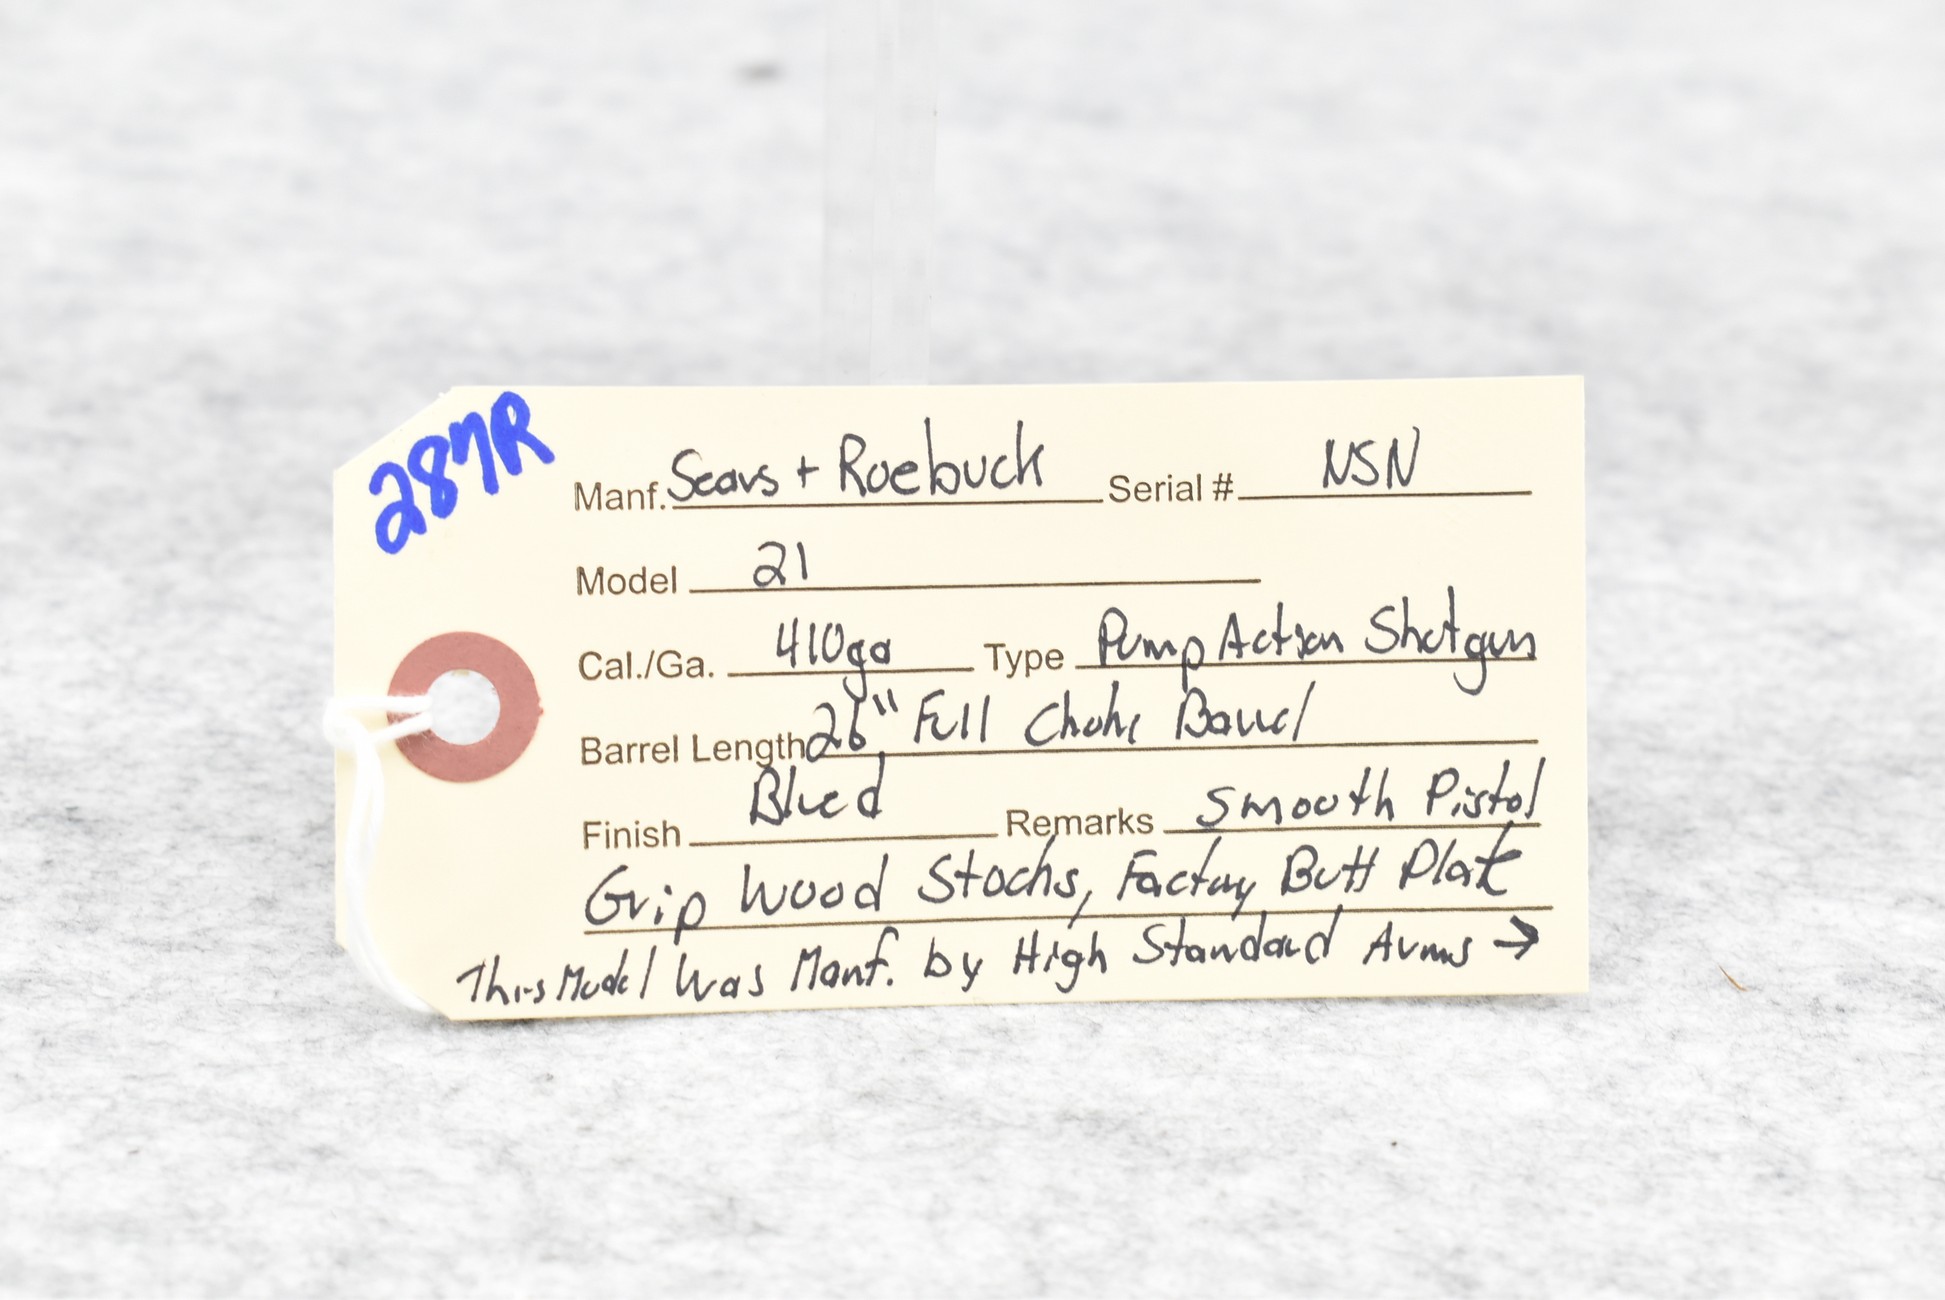 287R
Manf. Sears + Roebuck Serial # NSN
Model 21
Cal./Ga. 410ga Type Pump Action Shotgun
Barrel Length 26" Full Choke Barrel
Finish Blued Remarks Smooth Pistol
Grip Wood Stocks, Factory Butt Plate
This Model Was Manf. by High Standard Arms →